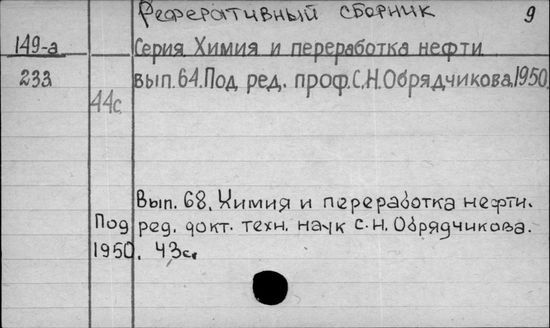 Реферативный сборник 9
149-а Серия Химия и переработка нефти
233 вып. 64. Под ред. проф. С.Н. Обрядчикова, 1950.
44с
Вып. 68. Химия и переработка нефти.
Под ред. докт. техн. наук С.Н. Обрядчикова.
1950. 43с.